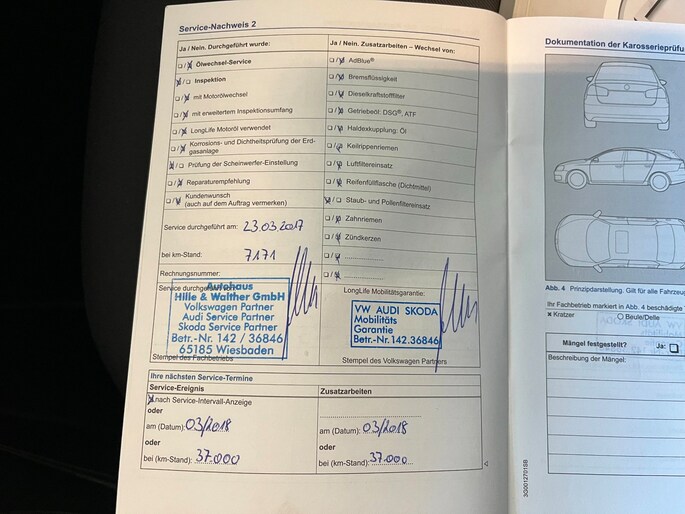 Service-Nachweis 2
Ja / Nein. Durchgeführt wurde:
Ölwechsel-Service
Inspektion
mit Motorölwechsel
mit erweitertem Inspektionsumfang
LongLife Motoröl verwendet
Korrosions- und Dichtheitsprüfung der Erd-
gasanlage
Prüfung der Scheinwerfer-Einstellung
Reparaturempfehlung
Kundenwunsch
(auch auf dem Auftrag vermerken)
Service durchgeführt am: 23.03.2017
bei km-Stand: 7171
Rechnungsnummer:
Service durchgeführt
Autohaus
Hille & Walther GmbH
Volkswagen Partner
Audi Service Partner
Skoda Service Partner
Betr.-Nr. 142 / 36846
65185 Wiesbaden
Stempel des Fachbetriebs
Ja / Nein. Zusatzarbeiten – Wechsel von:
AdBlue®
Bremsflüssigkeit
Dieselkraftstofffilter
Getriebeöl: DSG®, ATF
Haldexkupplung: Öl
Keilrippenriemen
Luftfiltereinsatz
Reifenfüllflasche (Dichtmittel)
Staub- und Pollenfiltereinsatz
Zahnriemen
Zündkerzen
LongLife Mobilitätsgarantie:
VW AUDI SKODA
Mobilitäts
Garantie
Betr.-Nr.142.36846
Stempel des Volkswagen Partners
Ihre nächsten Service-Termine
Service-Ereignis
nach Service-Intervall-Anzeige
oder
am (Datum): 03/2018
oder
bei (km-Stand): 37.000
Zusatzarbeiten
am (Datum): 03/2018
oder
bei (km-Stand): 37.000
Dokumentation der Karosserieprüfu
Abb. 4 Prinzipdarstellung. Gilt für alle Fahrzeug
Ihr Fachbetrieb markiert in Abb. 4 beschädigte
x Kratzer O Beule/Delle
Mängel festgestellt? Ja:
Beschreibung der Mängel:
3G0012701SB